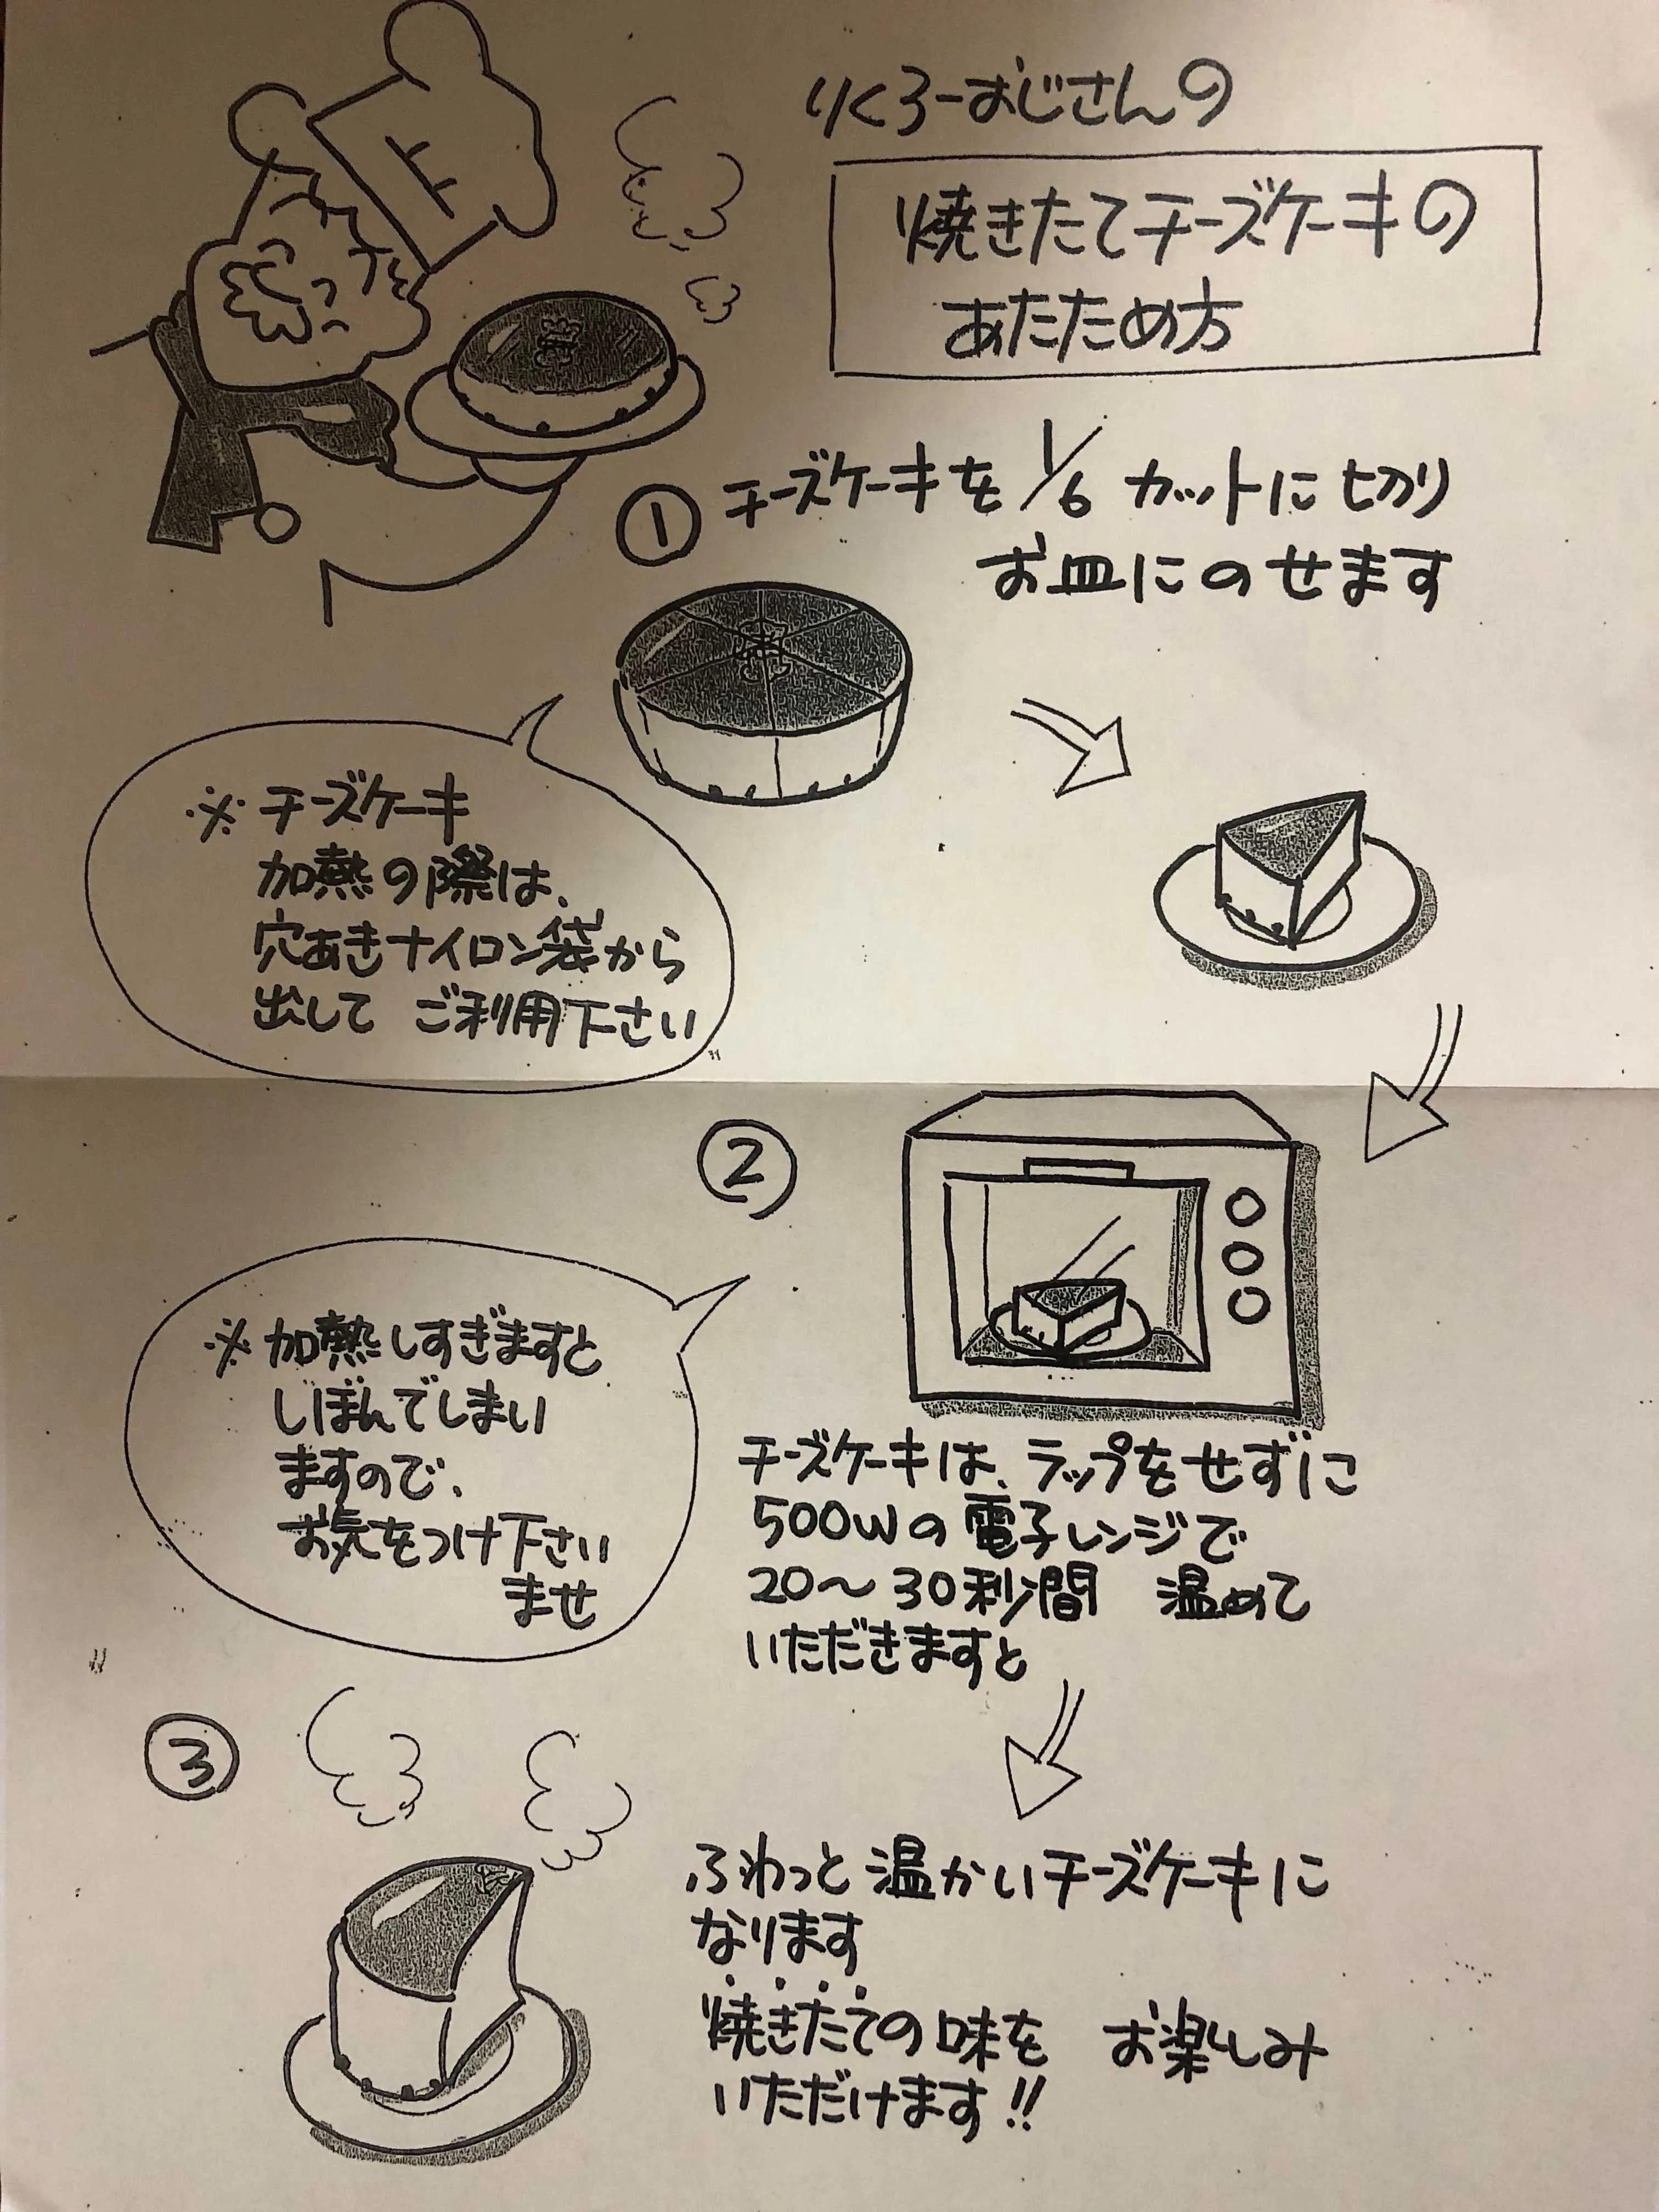 りくろーおじさんの
焼きたてチーズケーキの
あたため方
① チーズケーキを 1/6 カットに切り
お皿にのせます
※チーズケーキ
加熱の際は、
穴あきナイロン袋から
出して ご利用下さい
②
※加熱しすぎますと
しぼんでしまい
ますので、
お気をつけ下さい
ませ
チーズケーキは、ラップをせずに
500Wの電子レンジで
20〜30秒間 温めて
いただきますと
③
ふわっと温かいチーズケーキに
なります
焼きたての味を お楽しみ
いただけます!!